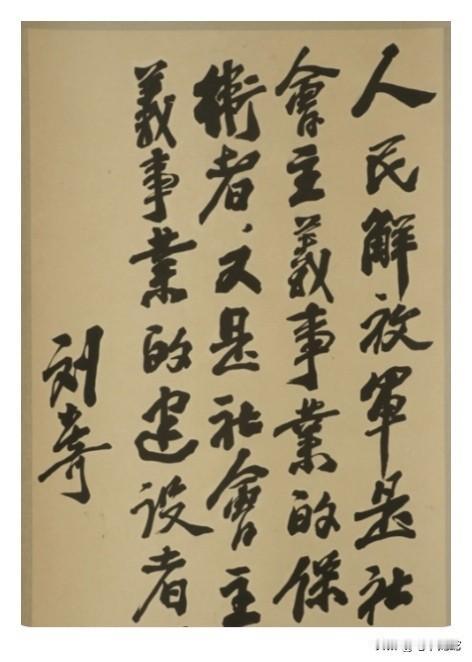 人民解放軍是社
會主義事業的保
衛者，又是社會主
義事業的建设者
刘奇